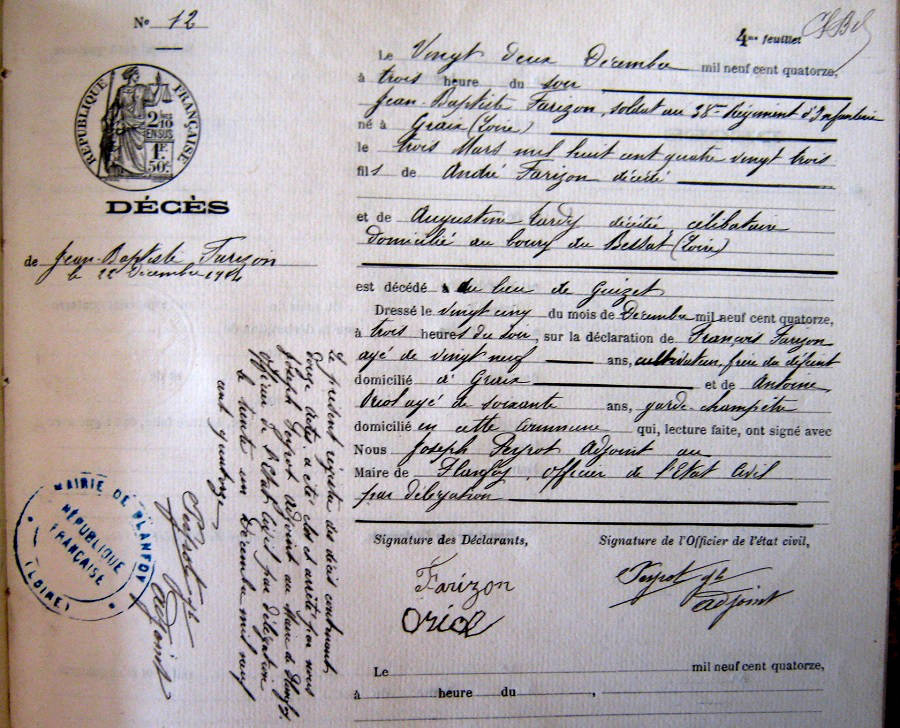 Nº 12
4me feuillet
RÉPUBLIQUE FRANÇAISE
2/10
EN SUS
1F.
50c
DÉCÈS
de Jean-Baptiste Farizon
le 22 Décembre 1914
Le Vingt deux Décembre mil neuf cent quatorze,
à trois heure du soir
Jean-Baptiste Farizon, soldat au 38me Régiment d'Infanterie
né à Graix (Loire)
le trois Mars mil huit cent quatre vingt trois
fils de André Farizon décédé
et de Augustine Tardy décédée, célibataire
domicilié au bourg du Bessat (Loire)
est décédé au lieu de Guizet
Dressé le vingt cinq du mois de Décembre mil neuf cent quatorze,
à trois heures du soir, sur la déclaration de François Farizon
agé de vingt neuf ans, cultivateur, frère du défunt
domicilié à Graix et de Antoine
Oriol agé de soixante ans, garde-champêtre
domicilié en cette commune qui, lecture faite, ont signé avec
Nous Joseph Peyrot Adjoint au
Maire de Planfoy, Officier de l'Etat Civil
par délégation
Signature des Déclarants, Signature de l'Officier de l'état civil,
Farizon
Oriol
Peyrot
adjoint
Le mil neuf cent quatorze,
à heure du ,
Le présent registre des décès contenant
douze actes a été clos et arrêté par nous
Joseph Peyrot adjoint au Maire de Planfoy
officier de l'Etat Civil par délégation
le trente un Décembre mil neuf
cent quatorze
Peyrot
adjoint
MAIRIE DE PLANFOY
RÉPUBLIQUE
FRANÇAISE
(LOIRE)